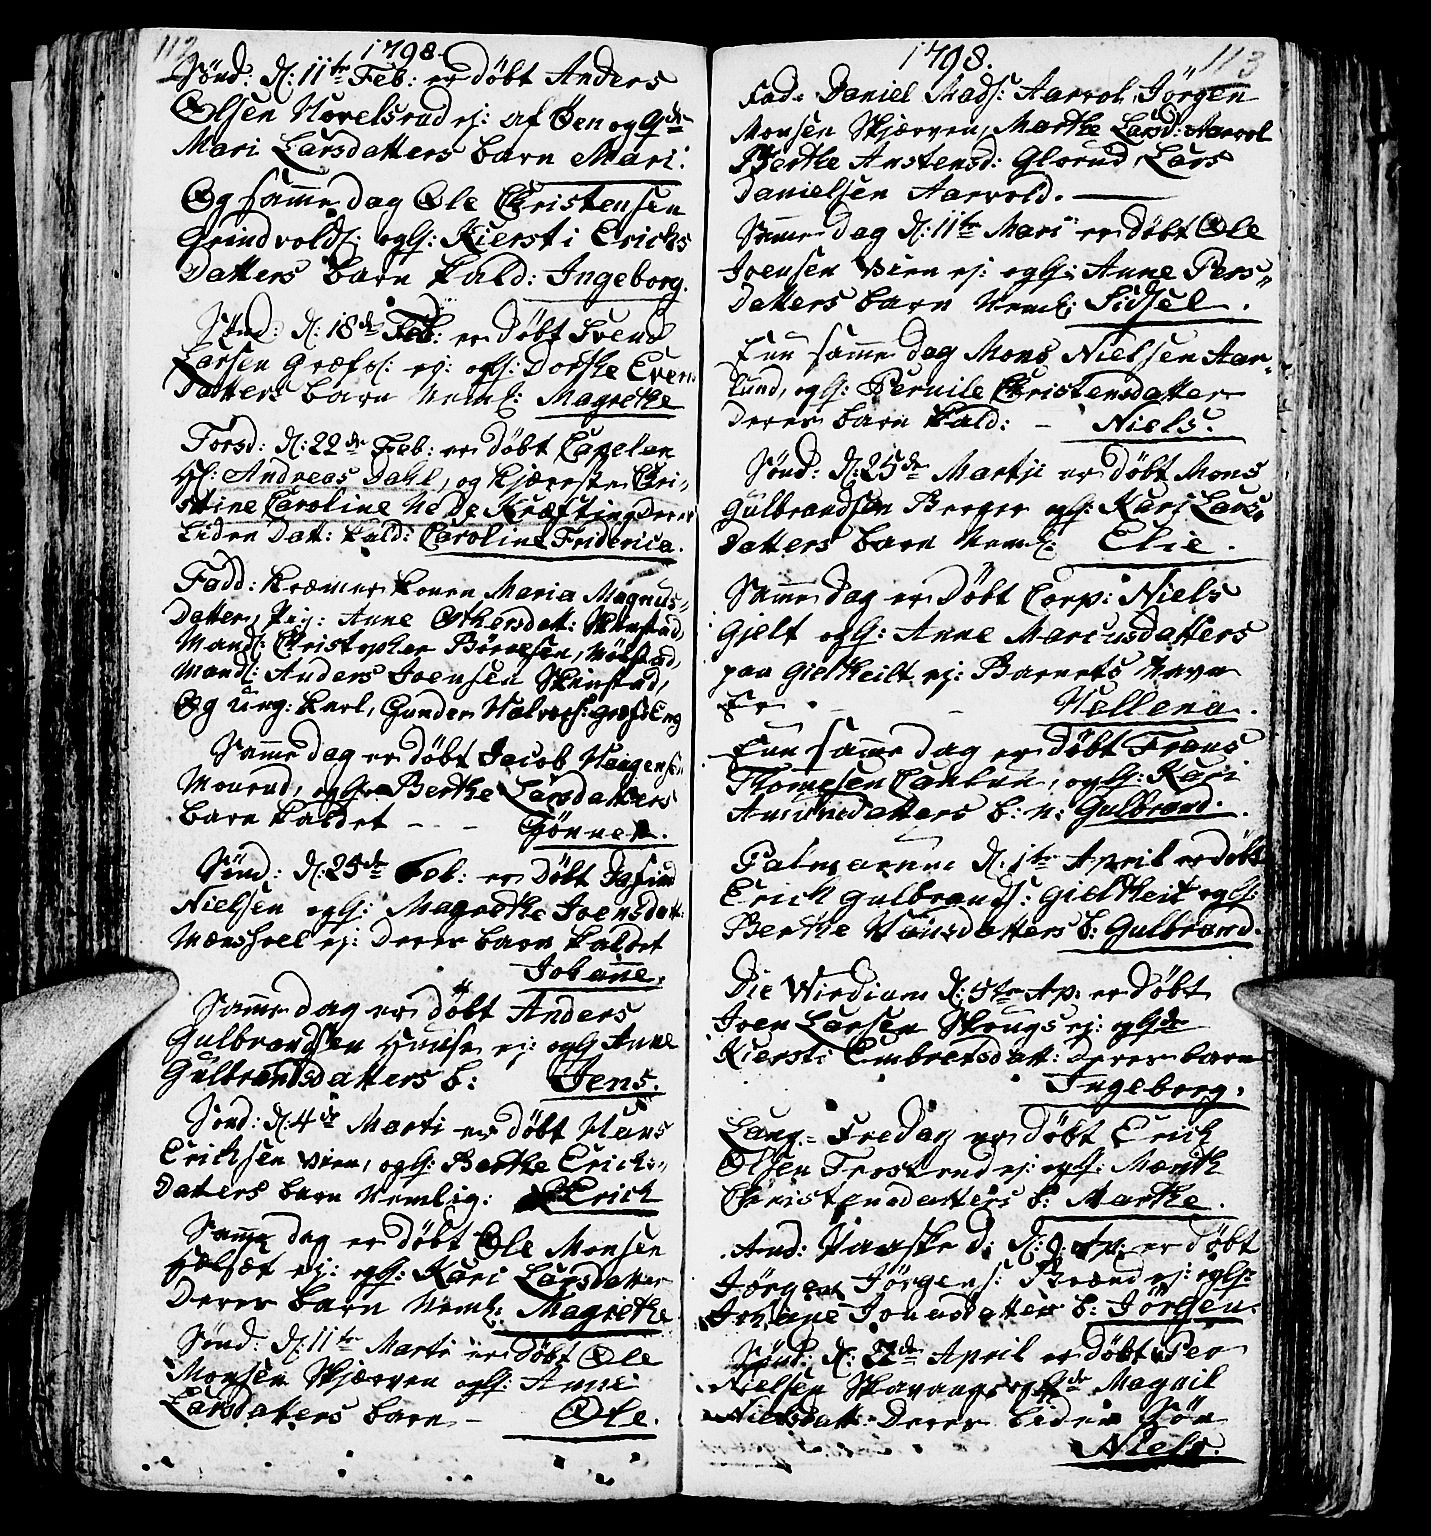 112
1798.
Sønd: D: 11te Feb: er døbt Anders
Olsen Hovelsrud ej: af Øen og Gde
Mari Larsdatters barn Mari.
Og samme dag Ole Christensen
Grindvold: og h: Kiersti Erichs
datters barn kald: Ingeborg.
Sønd: D: 18de Feb: er døbt Svend
Larsen Græfs: ej: og h: Dorthe Even
datters barn Neml: Magrethe
Torsd: D: 22de Feb: er døbt Capelan
Hl: Andreas Dahl, og kjæreste Chri-
stine Caroline Ne De Kræfting derer
liden Datt: kald: Caroline Friderica.
Fadd: kræmer konen Maria Magnus-
datter, Pig: Anne Othersdatt: Skinstad,
Mand: Christopher Børresen, Mølstad,
Mand: Anders Joensen Skinstad,
Og Ung: karl, Gunder Halvors: Græfs Eng
Samme dag er døbt Jacob Haagens:
Morud, og h: Berthe Larsdatters
barn kaldet - - Gønner.
Sønd: D: 25de Feb: er døbt
Nielsen og h: Magrethe Joensdatt:
ej: Derer barn kaldet
Johane.
Samme dag er døbt Anders
Gulbrandsen Huuse ej: og h Anne
Gulbrandsdatters b: Jens.
Sønd: D: 4de Marti er døbt Hans
Erichsen Vien, og h: Berthe Erichs-
datters barn Nemlig: Erich
Samme dag er døbt Ole Monsen
Hølsæt ej: og h: Kari Larsdatter
Derer barn Neml: Magrethe
Sønd: D: 11te Marti er døbt Ole
Monsen Skjærven og h: Anne
Larsdatters barn - Ole.
113
1798.
Fad: Daniel Mads: Aarvol, Jörgen
Monsen Skjærven, Marthe Larsd: Aarvol
Berthe Anstensd: Glorud, Lars
Danielsen Aarvold.
Samme dag D: 11te Mari er døbt Ole
Joensen Vien ej: og h: Anne Pers-
datters barn Neml: Sidsel.
Enn samme dag Mons Nielsen Aar-
lund, og h: Pernile Christensdatter
derer barn kald: - Niels.
Sønd: D: 25de Martji er døbt Mons
Gulbrandsen Berger og h: Kari Lars-
datters barn Neml: Elie.
Samme dag er døbt Corp: Niels
Gjelt og h: Anne Marcusdatters
paa Gieltheilt ej: Barnets Navn
Er - - Hellena.
Enn samme dag er døbt Frans
Thomesen og h: Kari
Amundsdatters b: n: Gulbrand.
Palmarum D: 1te April er døbt
Erich Gulbrands: Gieltheit og h:
Berthe Hansdatters b: Gulbrand.
Die Viridium D: 5te Ap: er døbt
Joen Larsen Skougs ej: og Gde
Kiersti Embretsdatt: derer barn
Ingeborg.
Lang-Fredag er døbt Erich
Olsen Frosterud ej: og h: Marith
Christensdatters b: Marthe.
And: Paaske d: D: 9 Ap: er døbt
Jørgen Jørgens: Brænd ej: og h:
Johane Jonasdatter b: Jörgen.
Sønd: D: 22de April er døbt Per
Nielsen Skavanger og Gde Magnil
Nielsdatt: Derer liden Søn
Niels.